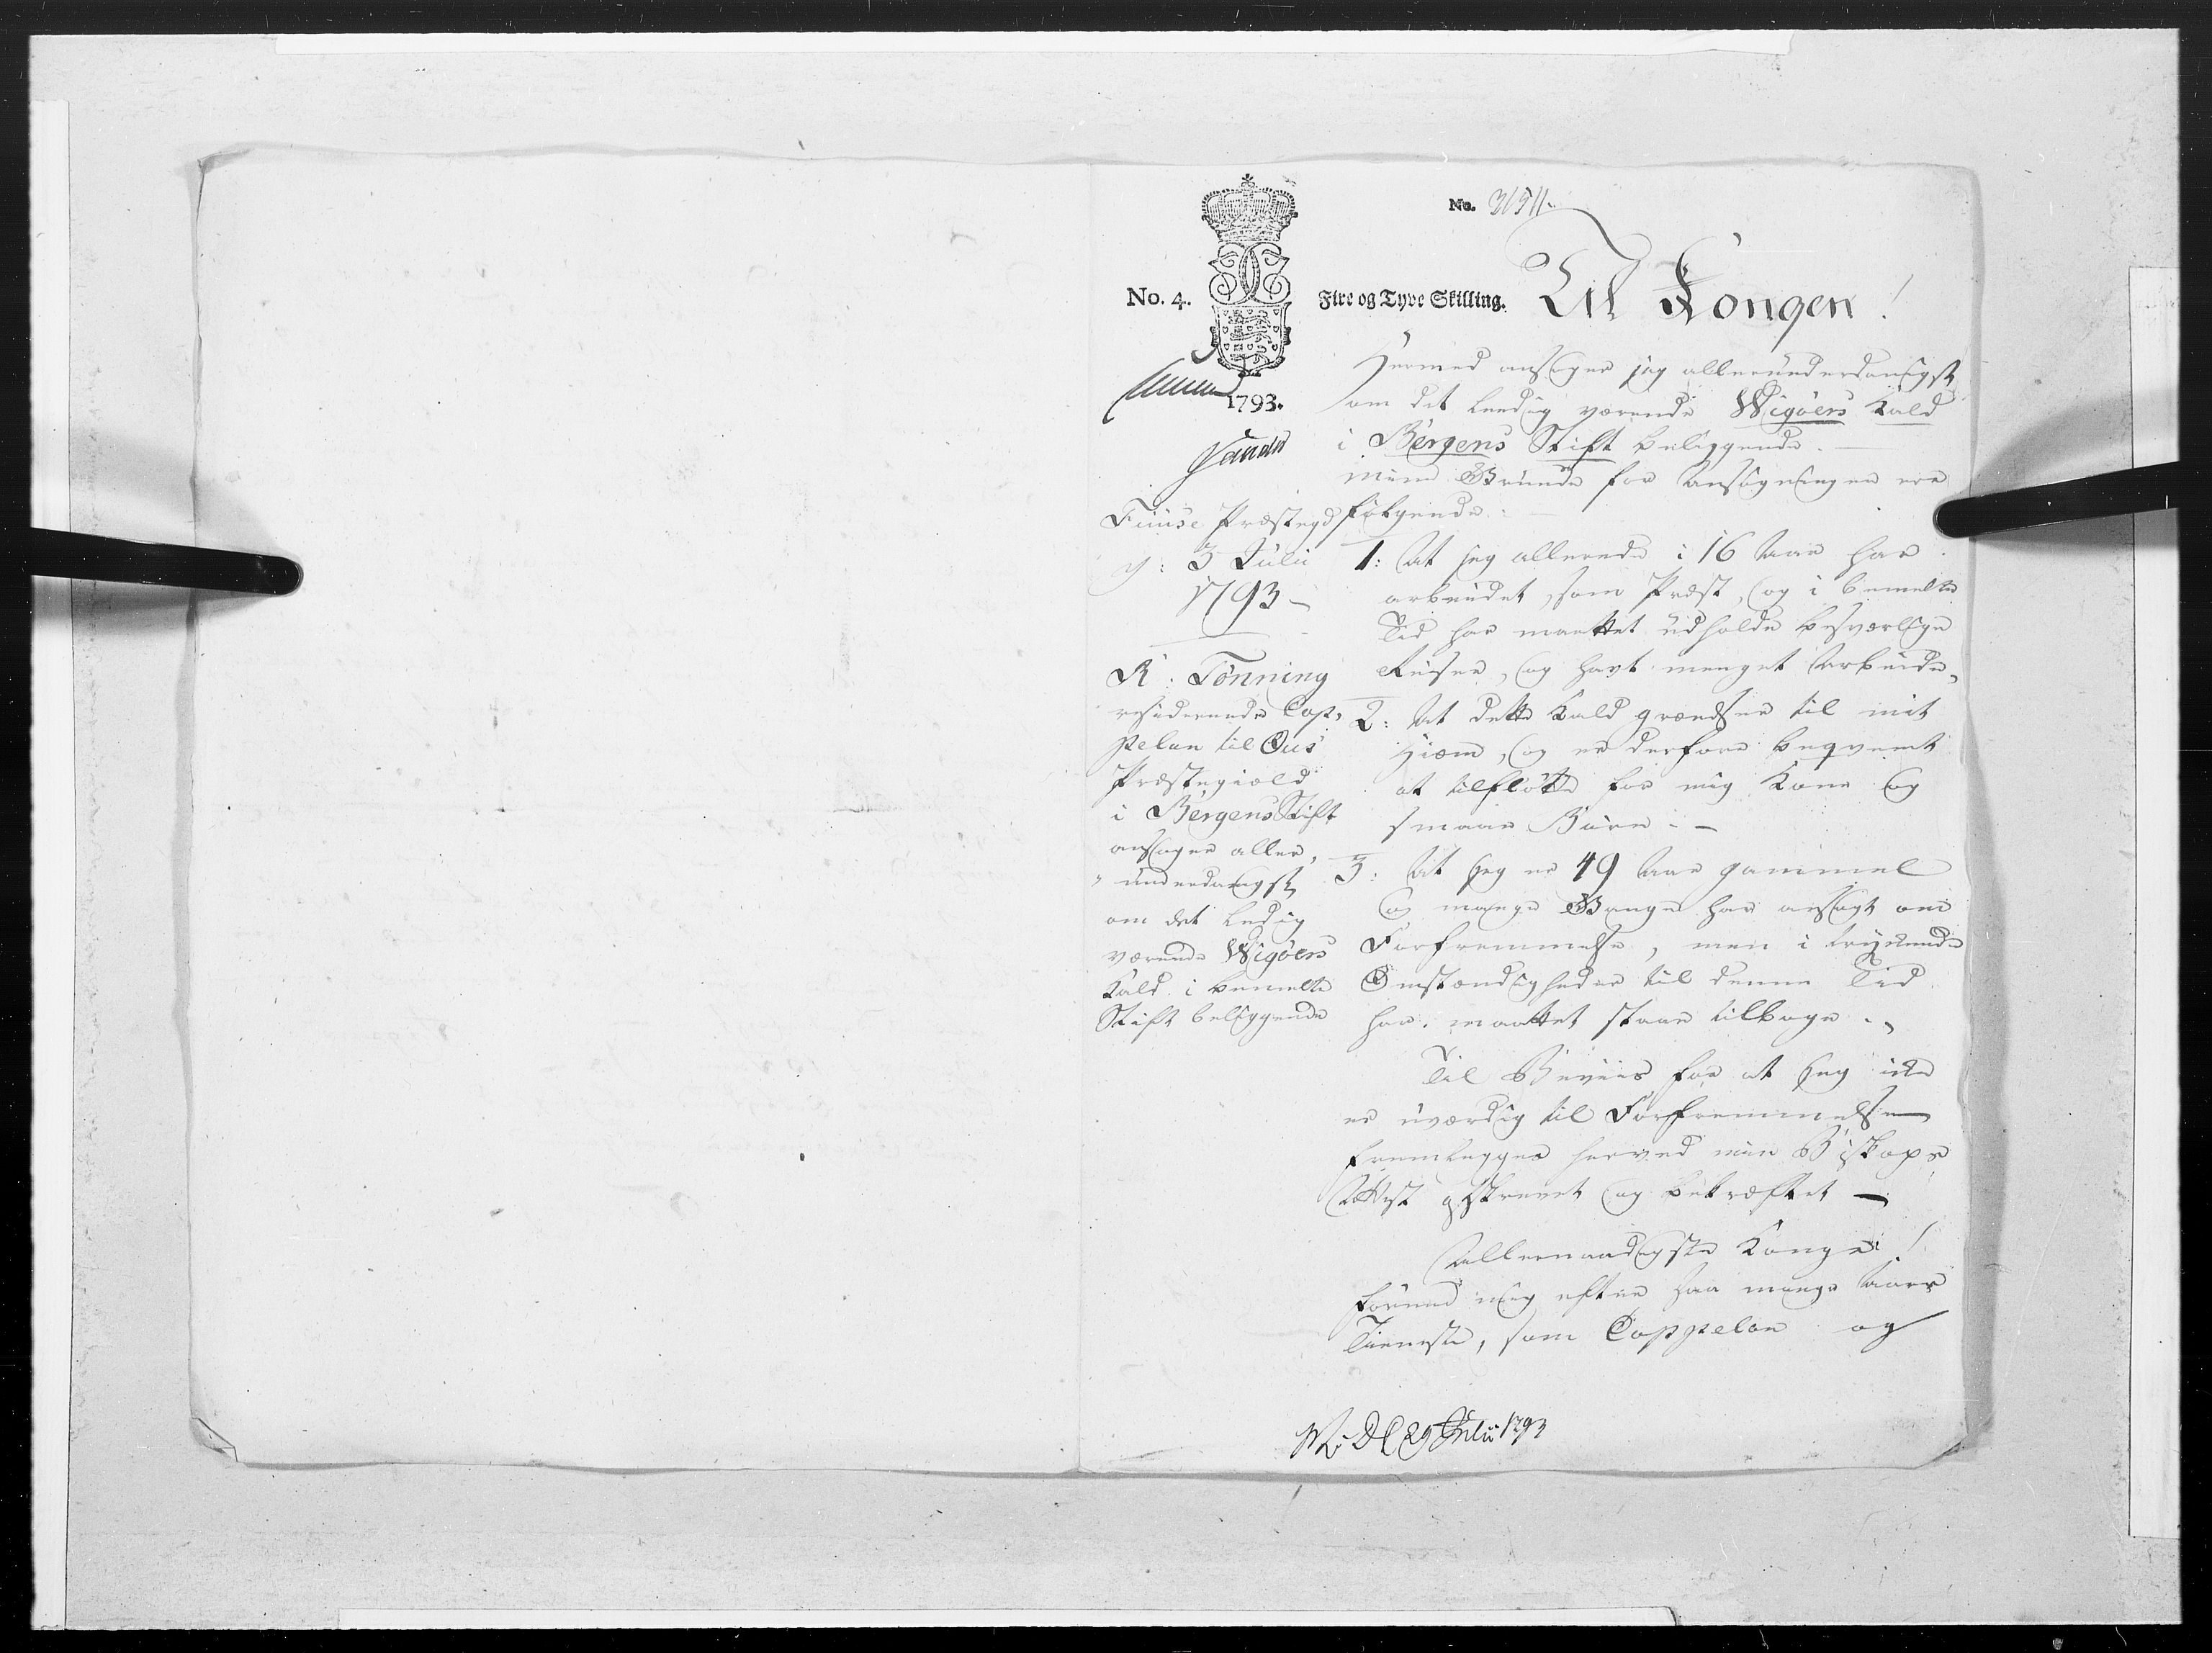 No. 31511.
No. 4.
Fire og Tyve Skilling.
Til Kongen!
1793.
Hermed ansøger jeg allerunderdanigst
om det leedig værende Wigøers Kald
i Bergens Stift beliggende. —
mine Grunde for Ansøgningen ere
følgende: —
1: At jeg allerede i 16 Aar har
arbeidet, som Præst, og i bemelte
Tid har maattet udholde besværlige
Reiser, og havt meeget Arbeide,
2: At dette Kald grændser til mit
Hiem, og er derfore beqvemt
at tilflötte for mig Kone og
smaae Börn. —
3: At jeg er 49 Aar gammel
og mange Gange har ansøgt om
Forfremmelse, men i trykkende
Omstændigheder til denne Tid
har maattet staae tilbage.
Til Beviis for at jeg ikke
er uværdig til Forfremmelse
fremlegges herved min Biskops
Attest gskrevet og bekræftet —
Allernaadigste Konge!
forund mig efter saa mange Aars
Tieneste, som Cappelan og
Fuuse Præstegd
d: 3 Julii
1793 —
R: Tønning
residerende Cap,
pelan til Ous
Præstegield
i Bergens Stift
ansøger aller,
„ underdanigst
om det ledig
værende Wigøers
Kald i bemelte
Stift beliggende
29 Julii 1793